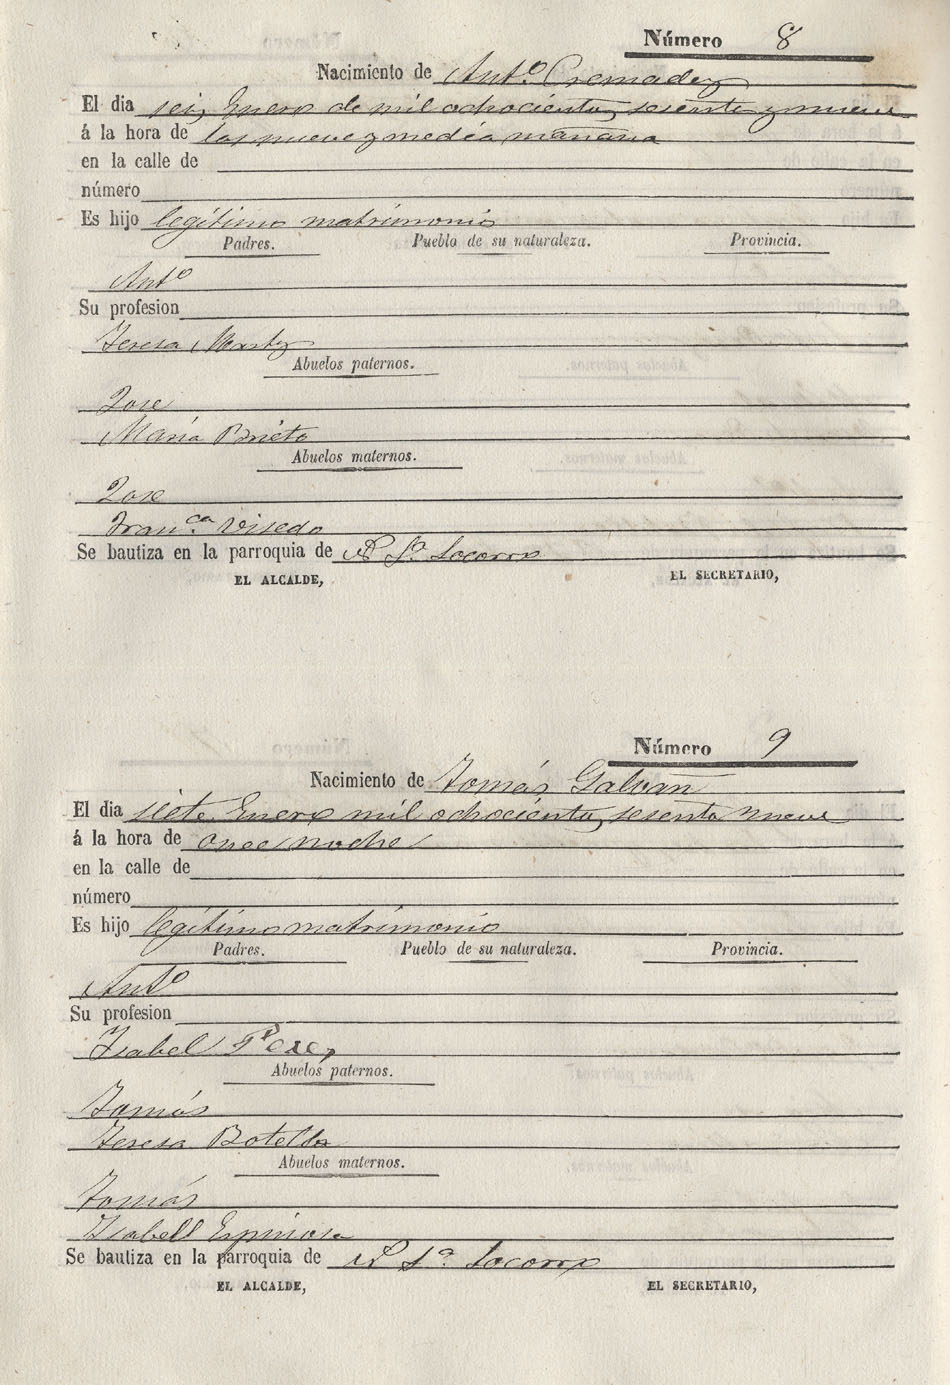 Número 8
Nacimiento de Antº Cremadez
El dia seis Enero de mil ochocientos sesenta y nueve
á la hora de las nueve y media mañana
en la calle de
número
Es hijo legítimo matrimonio
Padres. Pueblo de su naturaleza. Provincia.
Antº
Su profesion
Teresa Martz
Abuelos paternos.
Jose
María Prieto
Abuelos maternos.
Jose
Franca Visedo
Se bautiza en la parroquia de Sª Socorro
EL ALCALDE, EL SECRETARIO,
Número 9
Nacimiento de Tomás Galvañ
El dia siete Enero mil ochocientos sesenta nueve
á la hora de once noche
en la calle de
número
Es hijo legítimo matrimonio
Padres. Pueblo de su naturaleza. Provincia.
Antº
Su profesion
Isabel Perez
Abuelos paternos.
Tomás
Teresa Botella
Abuelos maternos.
Tomás
Isabell Espinosa
Se bautiza en la parroquia de Sª Socorro
EL ALCALDE, EL SECRETARIO,